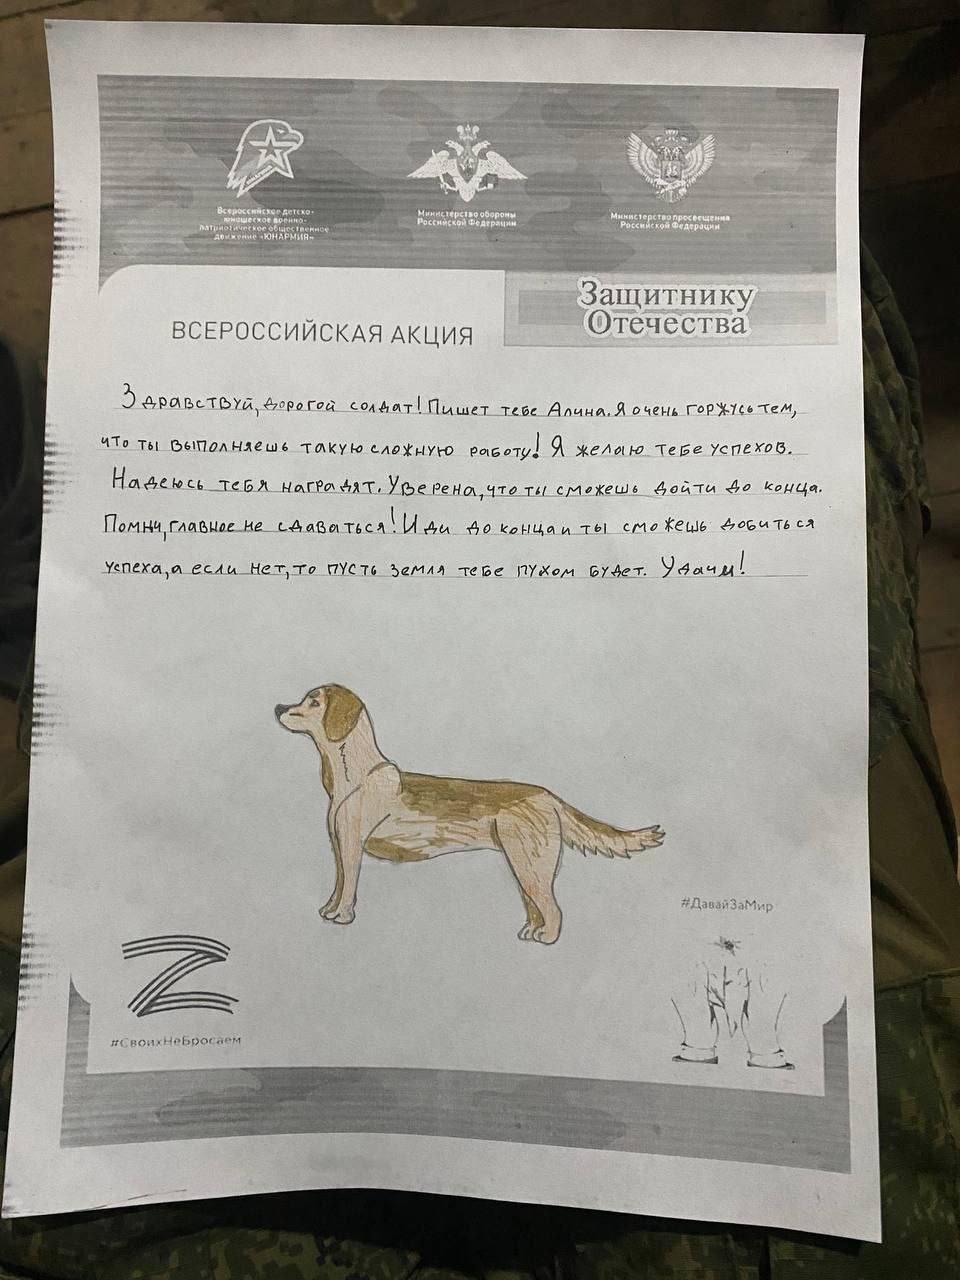 Всероссийское детско-
юношеское военно-
патриотическое общественное
движение «ЮНАРМИЯ»
Министерство обороны
Российской Федерации
Министерство просвещения
Российской Федерации
Защитнику
Отечества
ВСЕРОССИЙСКАЯ АКЦИЯ
Здравствуй, дорогой солдат! Пишет тебе Алина. Я очень горжусь тем,
что ты выполняешь такую сложную работу! Я желаю тебе успехов.
Надеюсь тебя наградят. Уверена, что ты сможешь дойти до конца.
Помни, главное не сдаваться! Иди до конца и ты сможешь добиться
успеха, а если нет, то пусть земля тебе пухом будет. Удачи!
#ДавайЗаМир
Z
#СвоихНеБросаем